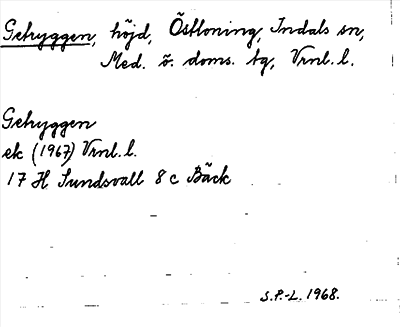 Getryggen, höjd, Östloning, Indals sn,
Med. ö. doms. tg, Vrnl. l.
Getryggen
ek (1967) Vrnl. l.
17 H Sundsvall 8 c Bäck
S.P.-L. 1968.